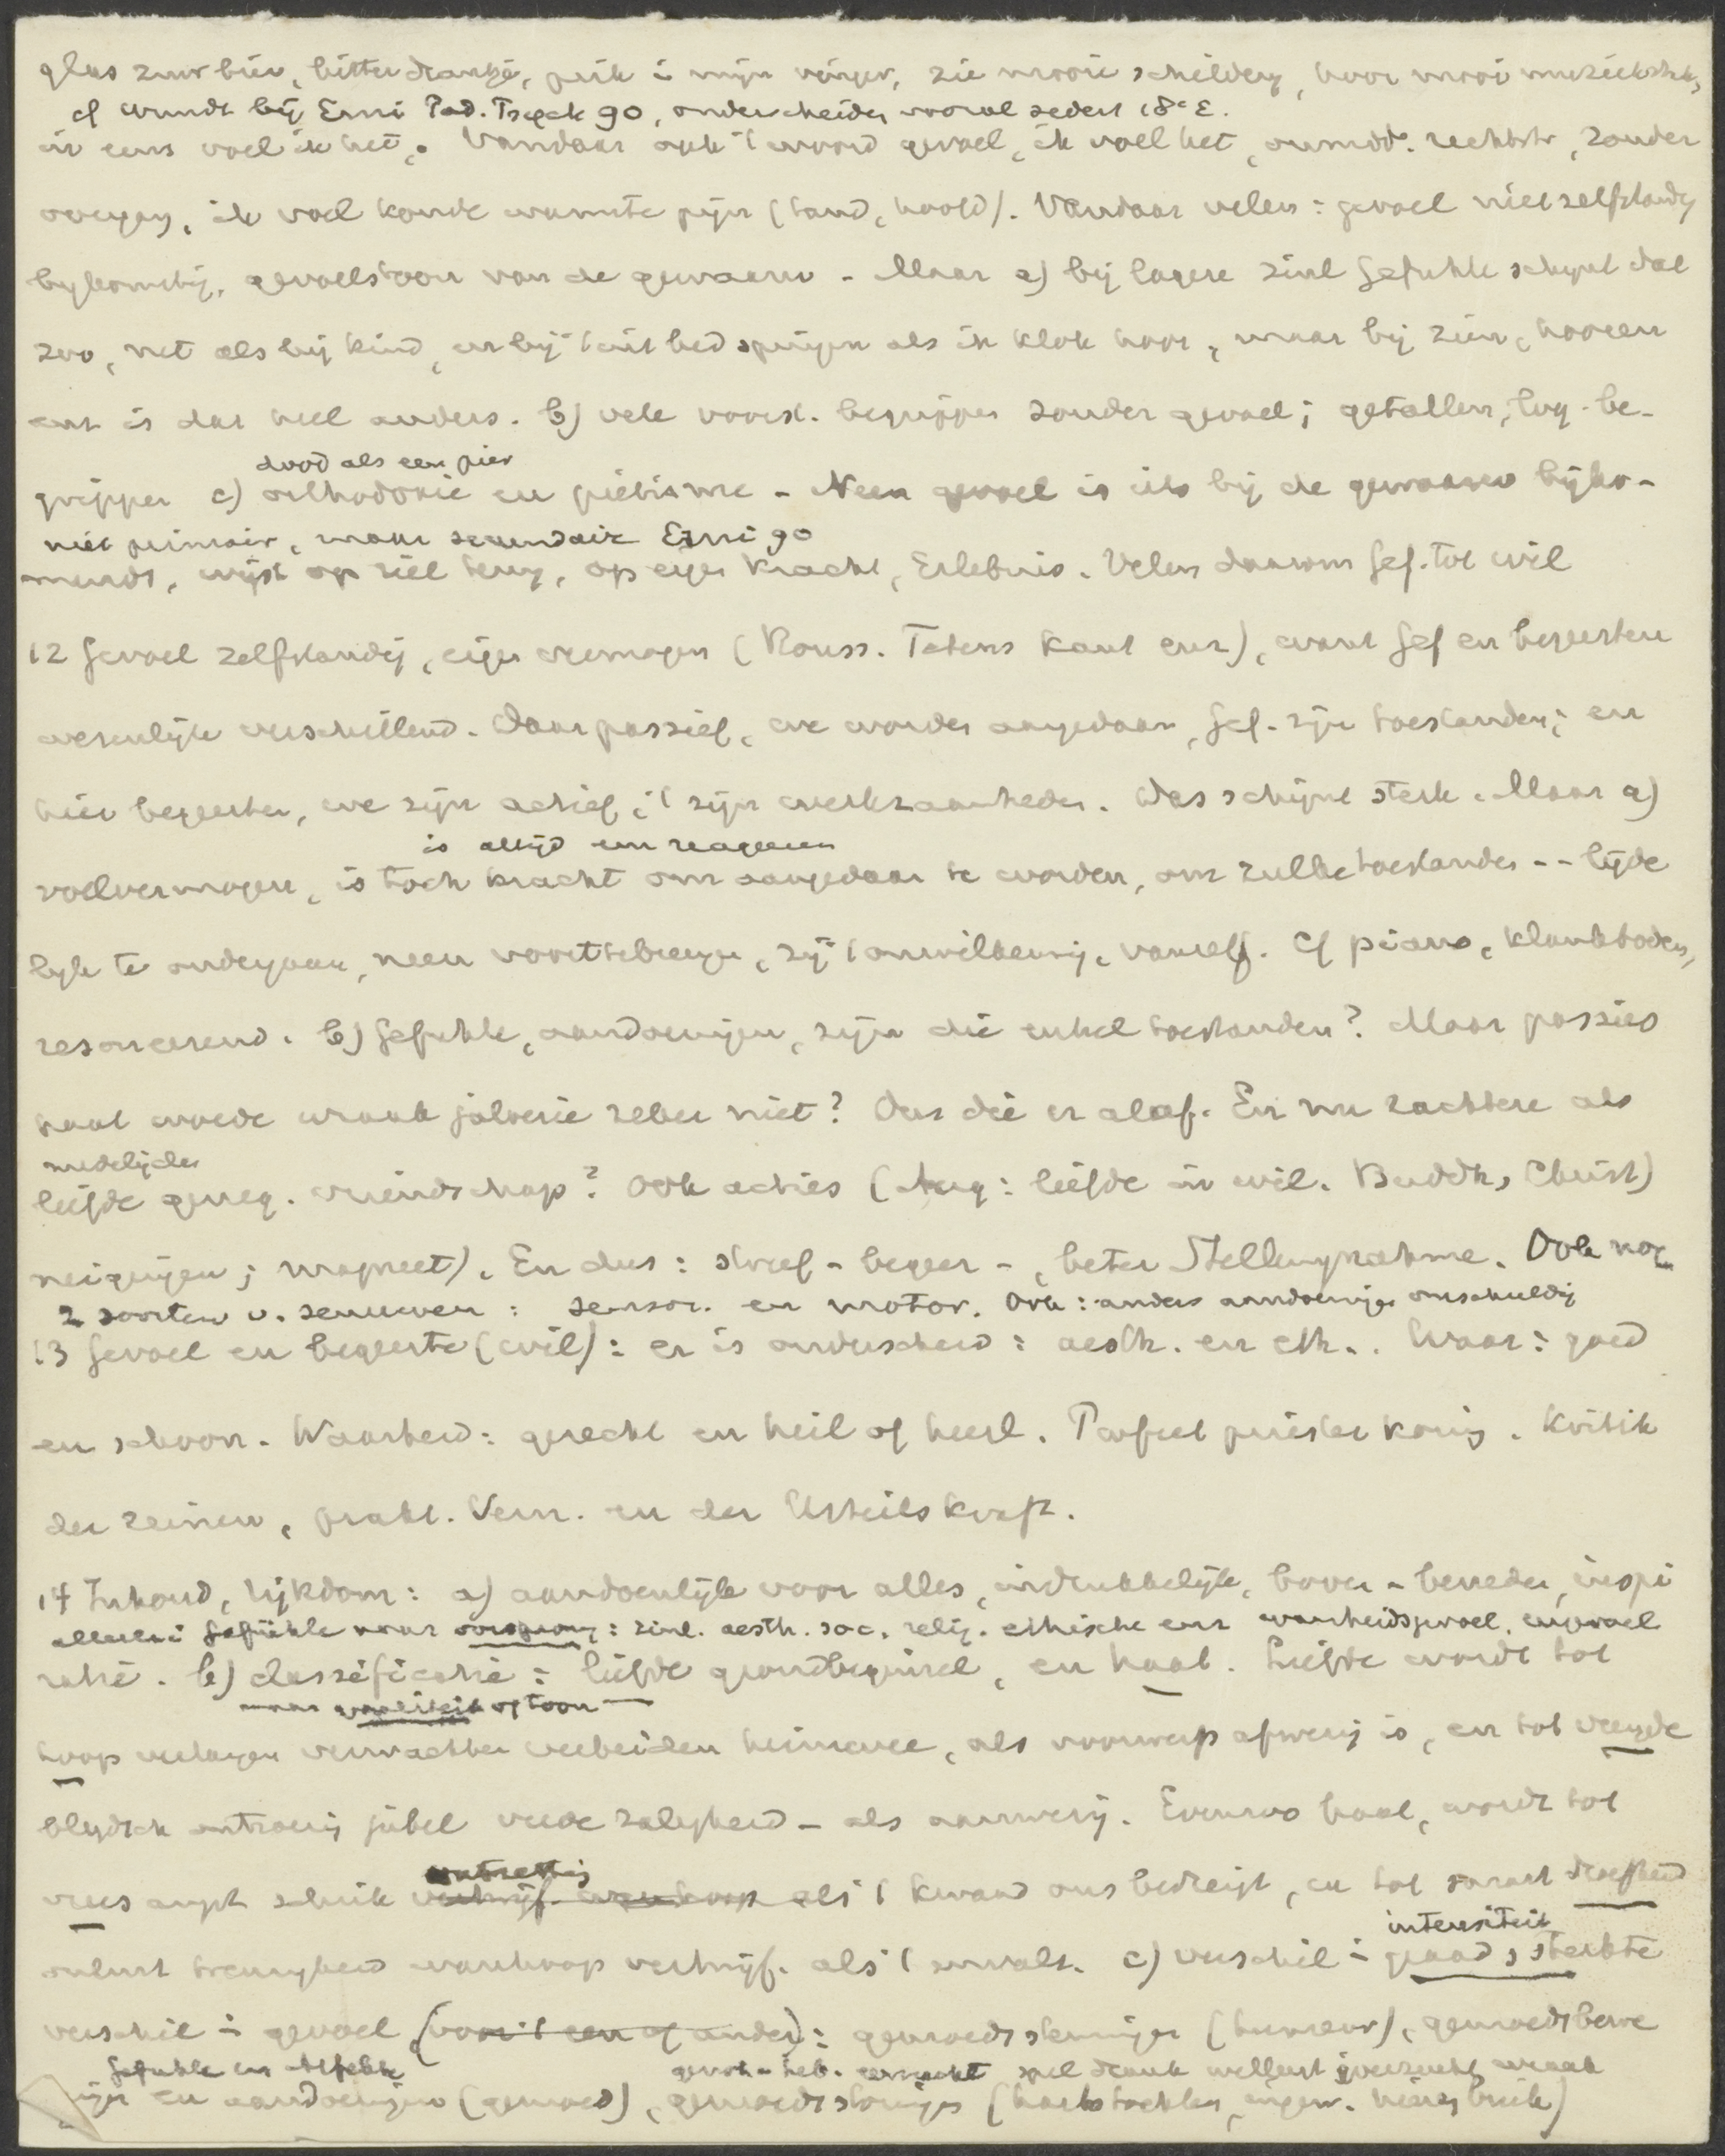 glas zuur bier, bitter drankje, prik i mijn vinger, zie mooie schildery, hoor mooi muziekstuk,
cf Wundt bij Erni Päd. Psych 90, onderscheiden vooral sedert 18e E.
in eens voel ik het. Vandaar ook 't woord gevoel, ik voel het, onmidd. rechtstr, zonder
ik voel koude warmte pijn (tand, hoofd). Vandaar velen: gevoel niet zelfstandig
bykomstig, gevoelstoon van de gewaarw - Maar a) bij lagere zinl Gefuhle schynt dat
zoo, net als bij kind, en bij 't uit bed springen als ik klok hoor, maar bij zien, hooren
enz is dat heel anders. b) vele voorst. begrippen zonder gevoel; getallen, log. be-
dood als een pier
grippen c) orthodoxie en pietisme - Neen gevoel is iets bij de gewaarw bijko-
niet primair, maar secundair Erni 90
mends, wijst op ziel terug, op eigen kracht, Erlebnis. Velen daarom Gef. tot wil
12 Gevoel zelfstandig, eigen vermogen (Rouss. Tetens Kant enz), want Gef en begeerten
wezenlijk verschillend. Daar passief, we worden aangedaan, Gef. zijn toestanden; en
hier begeerten, we zijn actief, 't zijn werkzaamheden. Das schijnt sterk. Maar a)
is altijd een reageeren
voelvermogen, is toch kracht om aangedaan te worden, om zulke toestanden -- lijde
lyk te ondergaan, neen voorttebrengen, zij 't onwillekeurig, vanzelf. Cf piano, klankbodem,
resoneerend. b) Gefuhle, aandoeningen, zijn die enkel toestanden? Maar passies
haat woede wraak jaloezie zeker niet? Dus die er alaf. En nu zachtere als
medelijden
liefde geneg. vriendschap? Ook acties (Aug: liefde in wil. Buddh, Christ)
neigingen; magneet). En dus: streef - begeer -, beter Stellungnahme. Ook nog
2 soorten v. zenuwen: sensor. en motor. Ook: anders aandoeningen onschuldig
13 Gevoel en begeerte (wil): er is onderscheid: aesth. en eth.. Waar: goed
en schoon. Waarheid: gerecht en heil of heerl. Profeet priester koning. Kritik
der reinen, prakt. Vern. en der Urteilskraft.
14 Inhoud, rijkdom: a) aandoenlijk voor alles, indrukkelijk, boven - beneden, inspi
allerlei Gefühle naar oorsprong: zinl. aesth. soc. relig. ethische enz waarheidsgevoel,
ratie. b) classificatie: liefde grondbeginsel, en haat. Liefde wordt tot
naar qualiteit of toon
hoop verlangen verwachten verbeiden heimwee, als voorwerp afwezig is, en tot vreugde
blydsch jubel vrede zaligheid - als aanwezig. Evenzoo haat, wordt tot
vrees angst schrik als 't kwaad ons bedreigt, en tot smart droefheid
onlust treurigheid wanhoop vertwijf. als 't c) verschil i graad, sterkte
intensiteit
verschil i gevoel (voor 't een of ander): gemoedsstemmingen (humeur), gemoedsbewe
Gefuhle en Affekte
spel drank wellust ijverzucht wraak
gingen en aandoeningen (gemoed), gemoedsstoringen (hartstochten,